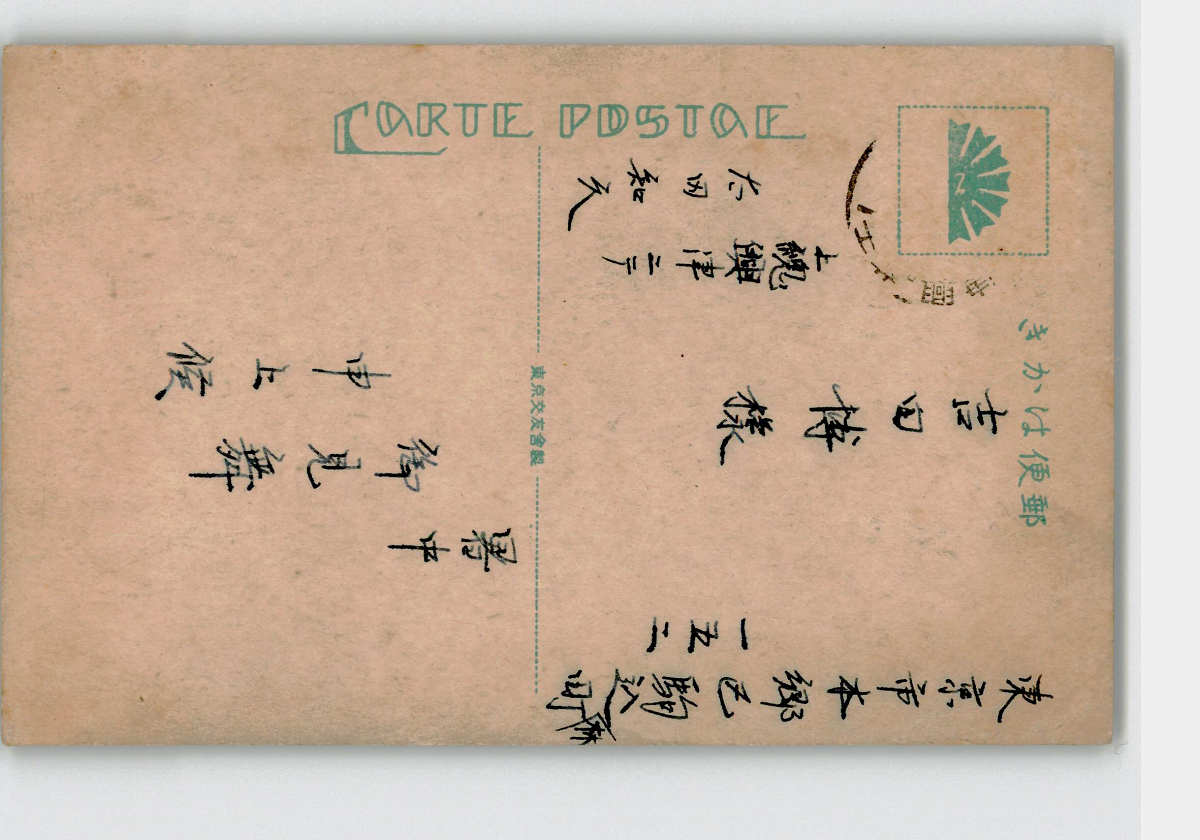 CARTE POSTALE
郵便はかき
東京市本郷区駒込林町
一五二
吉田博様
上総興津ニテ
暑中
御見舞
申上候
東京交友會製
N